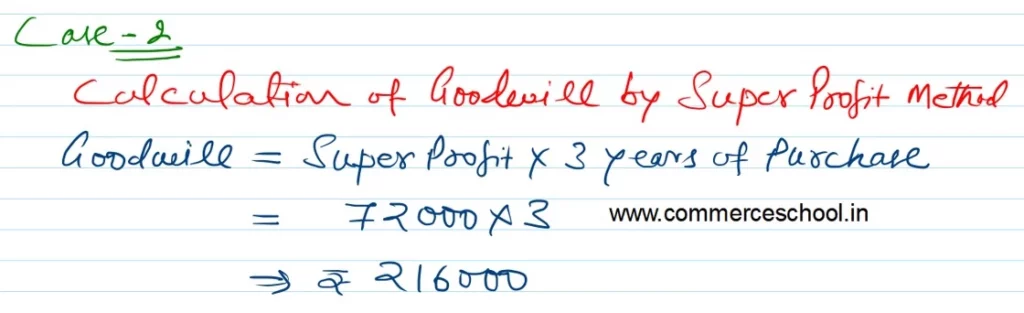 Case - 2
Calculation of Goodwill by Super Profit Method
Goodwill = Super Profit × 3 years of Purchase
= 72000 × 3
www.commerceschool.in
⇒ ₹ 216000